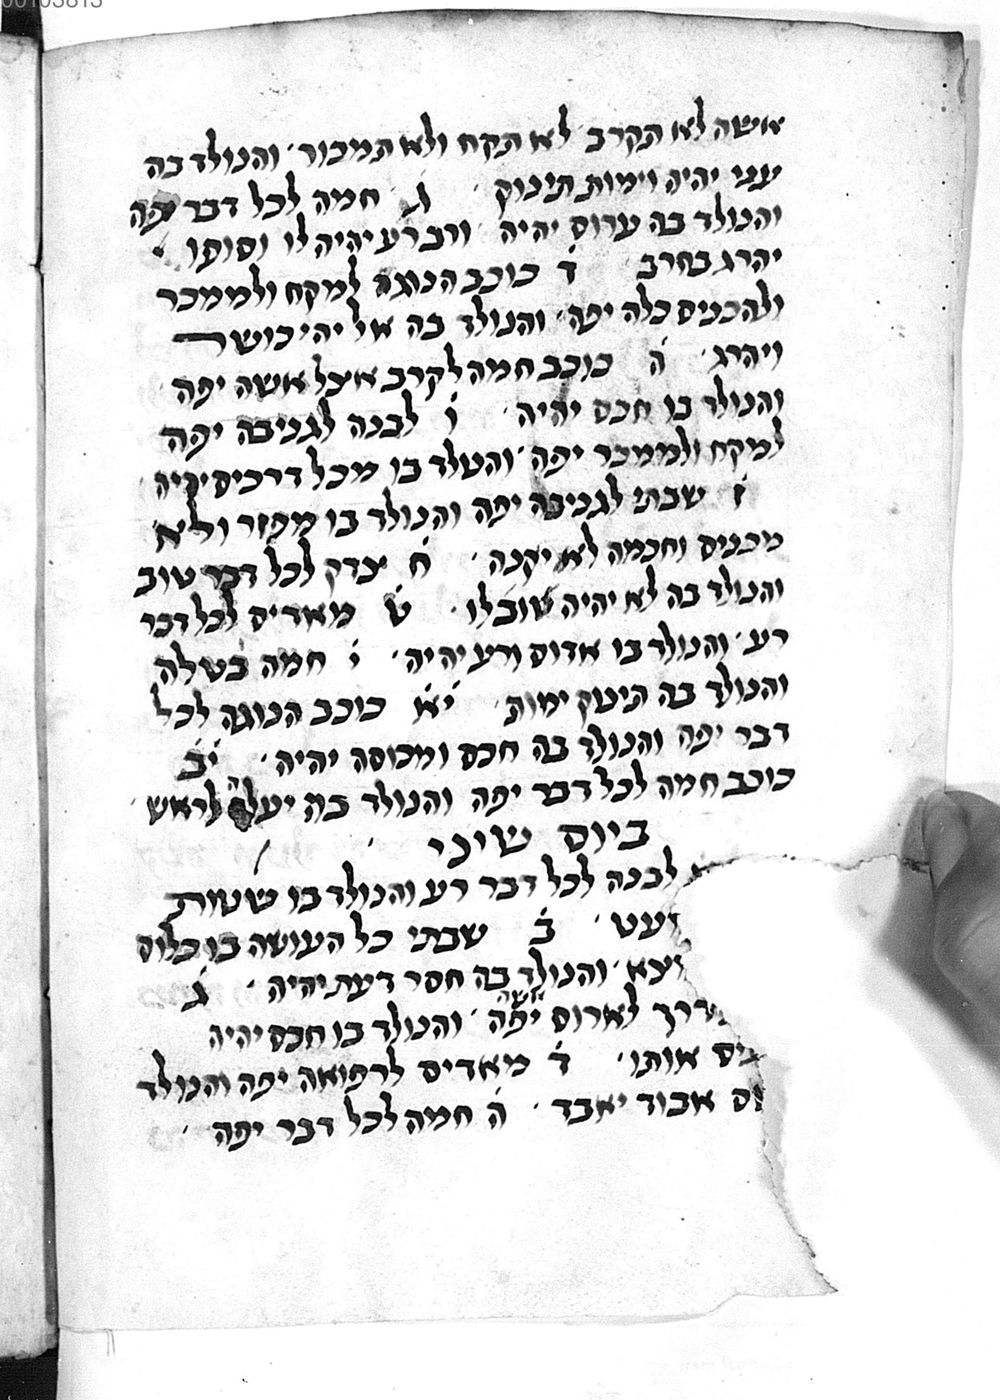 00103813
אשה לא תקרב לא תקח ולא תמכור והנולד בה
עני יהיה וימות תינוק ג חמה לכל דבר יפה
והנולד בה ערום יהיה ודבר רע יהיה לו וסופו
יהרג בחרב ד כוכב הנוגה למקח ולממכר
ולהכניס כלה יפה והנולד בה אל יהי כושר
ויהרג ה כוכב חמה לקרב אצל אשה יפה
והנולד בו חכם יהיה ו לבנה לגניבה יפה
למקח ולממכר יפה והנולד בו מכל דרכים יהיה
ז שבתי לגניבה יפה והנולד בו מפזר ולא
מכניס וחכמה לא יקנה ח צדק לכל דבר טוב
והנולד בה לא יהיה טוב לו ט מאדים לכל דבר
רע והנולד בו אדום ורע יהיה י חמה בטלה
והנולד בה תינוק ימות יא כוכב הנוגה לכל
דבר יפה והנולד בה חכם ומכוסה יהיה יב
כוכב חמה לכל דבר יפה והנולד בה יעלה לראש
ביום שיני
לבנה לכל דבר רע והנולד בו שטות
ב שבתי כל העושה בו כלום
והנולד בה חסר דעת יהיה ג
לארוס אשה יפה והנולד בו חכם יהיה
אותו ד מאדים לרפואה יפה והנולד
אבוד יאבד ה חמה לכל דבר יפה